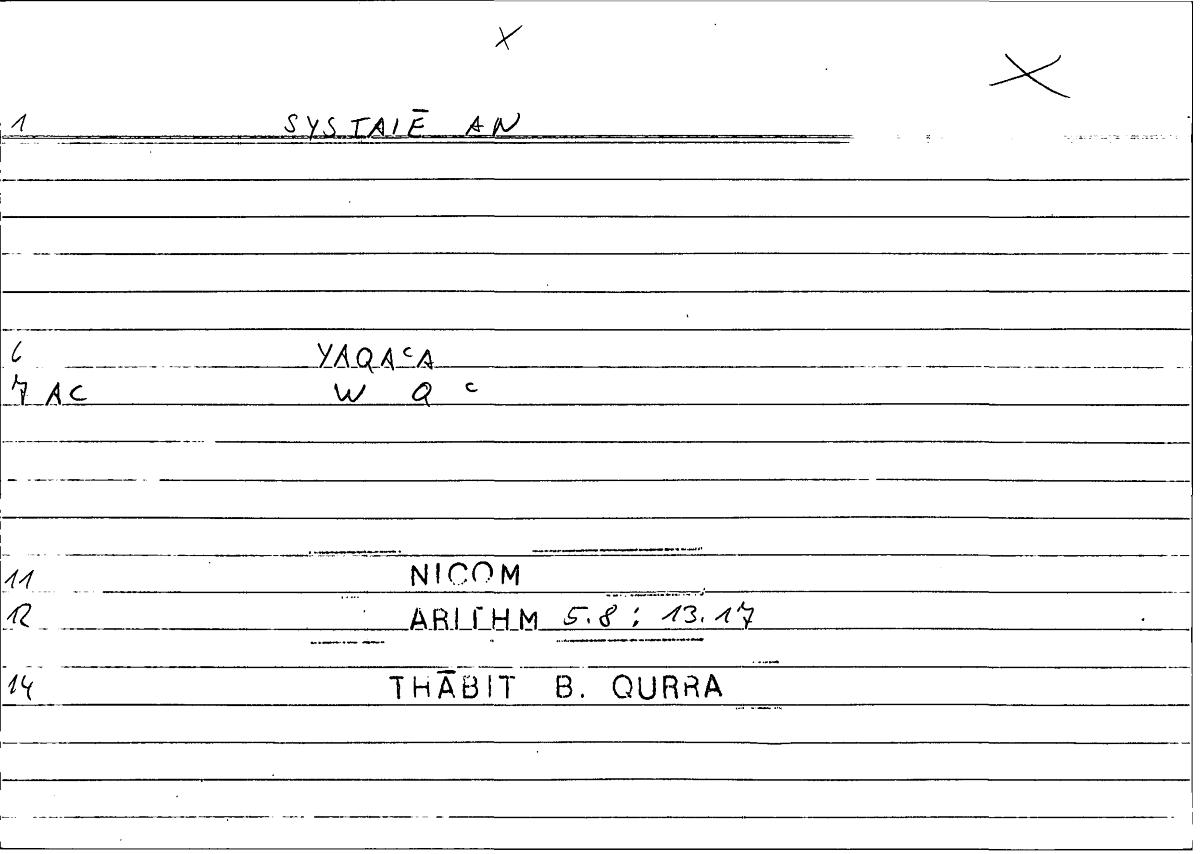 1 SYSTAIĒ AN
6 YAQAᶜA
7 AC W Q ᶜ
11 NICOM
12 ARITHM 5.8 ; 13.17
14 THĀBIT B. QURRA